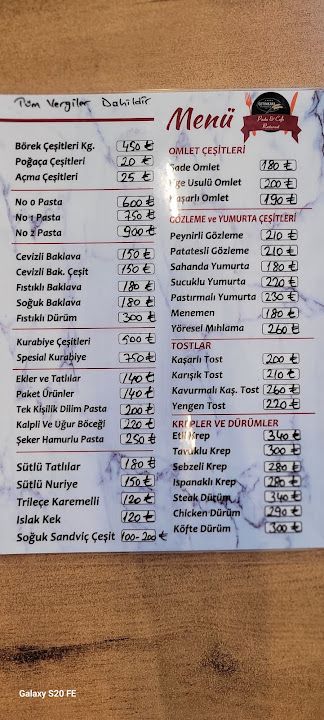 Tüm Vergiler Dahildir
Börek Çeşitleri Kg. 450 ₺
Poğaça Çeşitleri 20 ₺
Açma Çeşitleri 25 ₺
No 0 Pasta 600 ₺
No 1 Pasta 750 ₺
No 2 Pasta 900 ₺
Cevizli Baklava 150 ₺
Cevizli Bak. Çeşit 150 ₺
Fıstıklı Baklava 180 ₺
Soğuk Baklava 180 ₺
Fıstıklı Dürüm 300 ₺
Kurabiye Çeşitleri 500 ₺
Spesial Kurabiye 750 ₺
Ekler ve Tatlılar 140 ₺
Paket Ürünler 140 ₺
Tek Kişilik Dilim Pasta 200 ₺
Kalpli Ve Uğur Böceği 220 ₺
Şeker Hamurlu Pasta 250 ₺
Sütlü Tatlılar 180 ₺
Sütlü Nuriye 150 ₺
Trileçe Karemelli 120 ₺
Islak Kek 120 ₺
Soğuk Sandviç Çeşit 100-200 ₺
Menü
Pasta & Cafe
Restorant
OMLET ÇEŞİTLERİ
Sade Omlet 180 ₺
Ege Usulü Omlet 200 ₺
Kaşarlı Omlet 190 ₺
GÖZLEME ve YUMURTA ÇEŞİTLERİ
Peynirli Gözleme 210 ₺
Patatesli Gözleme 210 ₺
Sahanda Yumurta 180 ₺
Sucuklu Yumurta 220 ₺
Pastırmalı Yumurta 230 ₺
Menemen 180 ₺
Yöresel Mıhlama 260 ₺
TOSTLAR
Kaşarlı Tost 200 ₺
Karışık Tost 210 ₺
Kavurmalı Kaş. Tost 260 ₺
Yengen Tost 220 ₺
KREPLER VE DÜRÜMLER
Etli Krep 340 ₺
Tavuklu Krep 300 ₺
Sebzeli Krep 280 ₺
Ispanaklı Krep 280 ₺
Steak Dürüm 340 ₺
Chicken Dürüm 290 ₺
Köfte Dürüm 300 ₺
Galaxy S20 FE